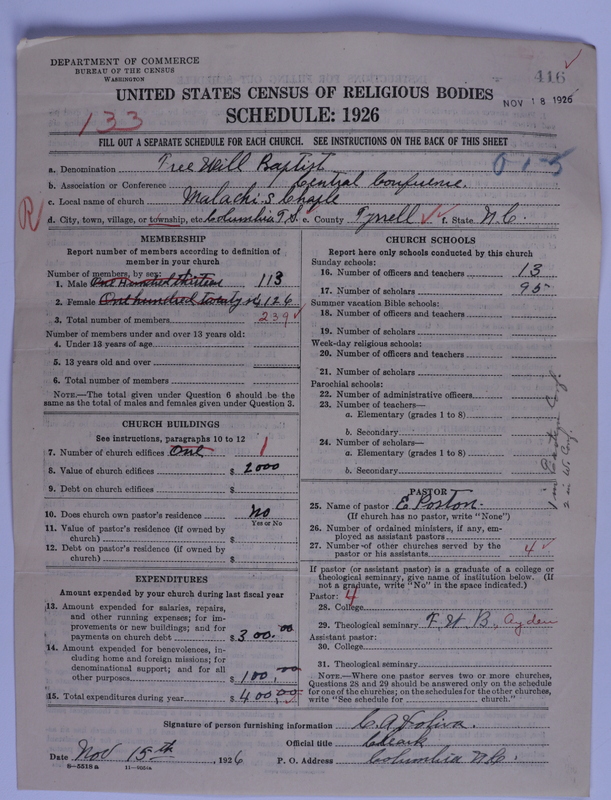 DEPARTMENT OF COMMERCE
BUREAU OF THE CENSUS
WASHINGTON
416
UNITED STATES CENSUS OF RELIGIOUS BODIES
NOV 18 1926
133
SCHEDULE: 1926
FILL OUT A SEPARATE SCHEDULE FOR EACH CHURCH. SEE INSTRUCTIONS ON THE BACK OF THIS SHEET
a. Denomination Free Will Baptist
0 1-5
b. Association or Conference Central Conference.
c. Local name of church Malachi.s Chaple
R
d. City, town, village, or township, etc. Columbia T.S. e. County Tyrrell f. State N.C.
MEMBERSHIP
Report number of members according to definition of member in your church
Number of members, by sex:
1. Male One Hundred thirteen 113
2. Female One hundred twenty six 126
3. Total number of members 239
Number of members under and over 13 years old:
4. Under 13 years of age
5. 13 years old and over
6. Total number of members
NOTE.—The total given under Question 6 should be the
same as the total of males and females given under Question 3.
CHURCH BUILDINGS
See instructions, paragraphs 10 to 12
7. Number of church edifices One 1
8. Value of church edifices $ 2000
9. Debt on church edifices $
10. Does church own pastor's residence? No
Yes or No
11. Value of pastor's residence (if owned by
church) $
12. Debt on pastor's residence (if owned by
church) $
EXPENDITURES
Amount expended by your church during last fiscal year
13. Amount expended for salaries, repairs,
and other running expenses; for im-
provements or new buildings; and for
payments on church debt $ 300.00
14. Amount expended for benevolences, in-
cluding home and foreign missions; for
denominational support; and for all
other purposes $ 100.00
15. Total expenditures during year $ 400.00
CHURCH SCHOOLS
Report here only schools conducted by this church
Sunday schools:
16. Number of officers and teachers 13
17. Number of scholars 95
Summer vacation Bible schools:
18. Number of officers and teachers
19. Number of scholars
Week-day religious schools:
20. Number of officers and teachers
21. Number of scholars
Parochial schools:
22. Number of administrative officers
23. Number of teachers—
a. Elementary (grades 1 to 8)
b. Secondary
24. Number of scholars—
a. Elementary (grades 1 to 8)
b. Secondary
1 in Eastern Conf.
2 in W. Conf.
PASTOR
25. Name of pastor E Poston.
(If church has no pastor, write "None")
26. Number of ordained ministers, if any, em-
ployed as assistant pastors
27. Number of other churches served by the
pastor or his assistants 4
If pastor (or assistant pastor) is a graduate of a college or
theological seminary, give name of institution below. (If
not a graduate, write "No" in the space indicated.)
Pastor: 4
28. College
29. Theological seminary F. W. B., Ayden
Assistant pastor:
30. College
31. Theological seminary
NOTE.—Where one pastor serves two or more churches,
Questions 28 and 29 should be answered only on the schedule
for one of the churches; on the schedules for the other churches,
write "See schedule for church."
Signature of person furnishing information
Official title Cleark
Date Nov 15th, 1926 P. O. Address Columbia N.C.
8-5518a